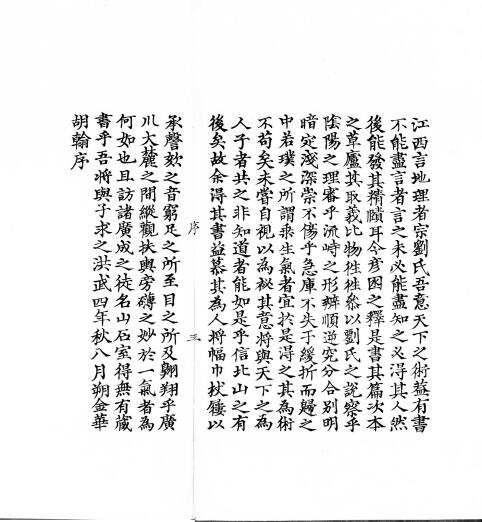 江西言地理者宗劉氏吾意天下之術蓋有書
不能盡言者言之未必能盡知之必得其人然
後能發其精賾耳今彥困之釋是書其篇次本
之草廬其取義比物徃徃叅以劉氏之說察乎
陰陽之理審乎流峙之形辨順逆究分合別明
暗定淺深崇不傷乎急庳不失于緩折而歸之
中若璞之所謂乘生氣者宜扵是得之其為術
不苟矣未嘗自視以為祕其意將與天下之為
人子者共之非知道者能如是乎信北山之有
後矣故余得其書益慕其為人將幅巾杖屨以
序 三
承謦欬之音窮足之所至目之所及翺翔乎廣
川大麓之間縱觀扶輿旁礴之妙於一氣者為
何如也且訪諸廣成之徒名山石室得無有藏
書乎吾將與子求之洪武四年秋八月朔金華
胡翰序